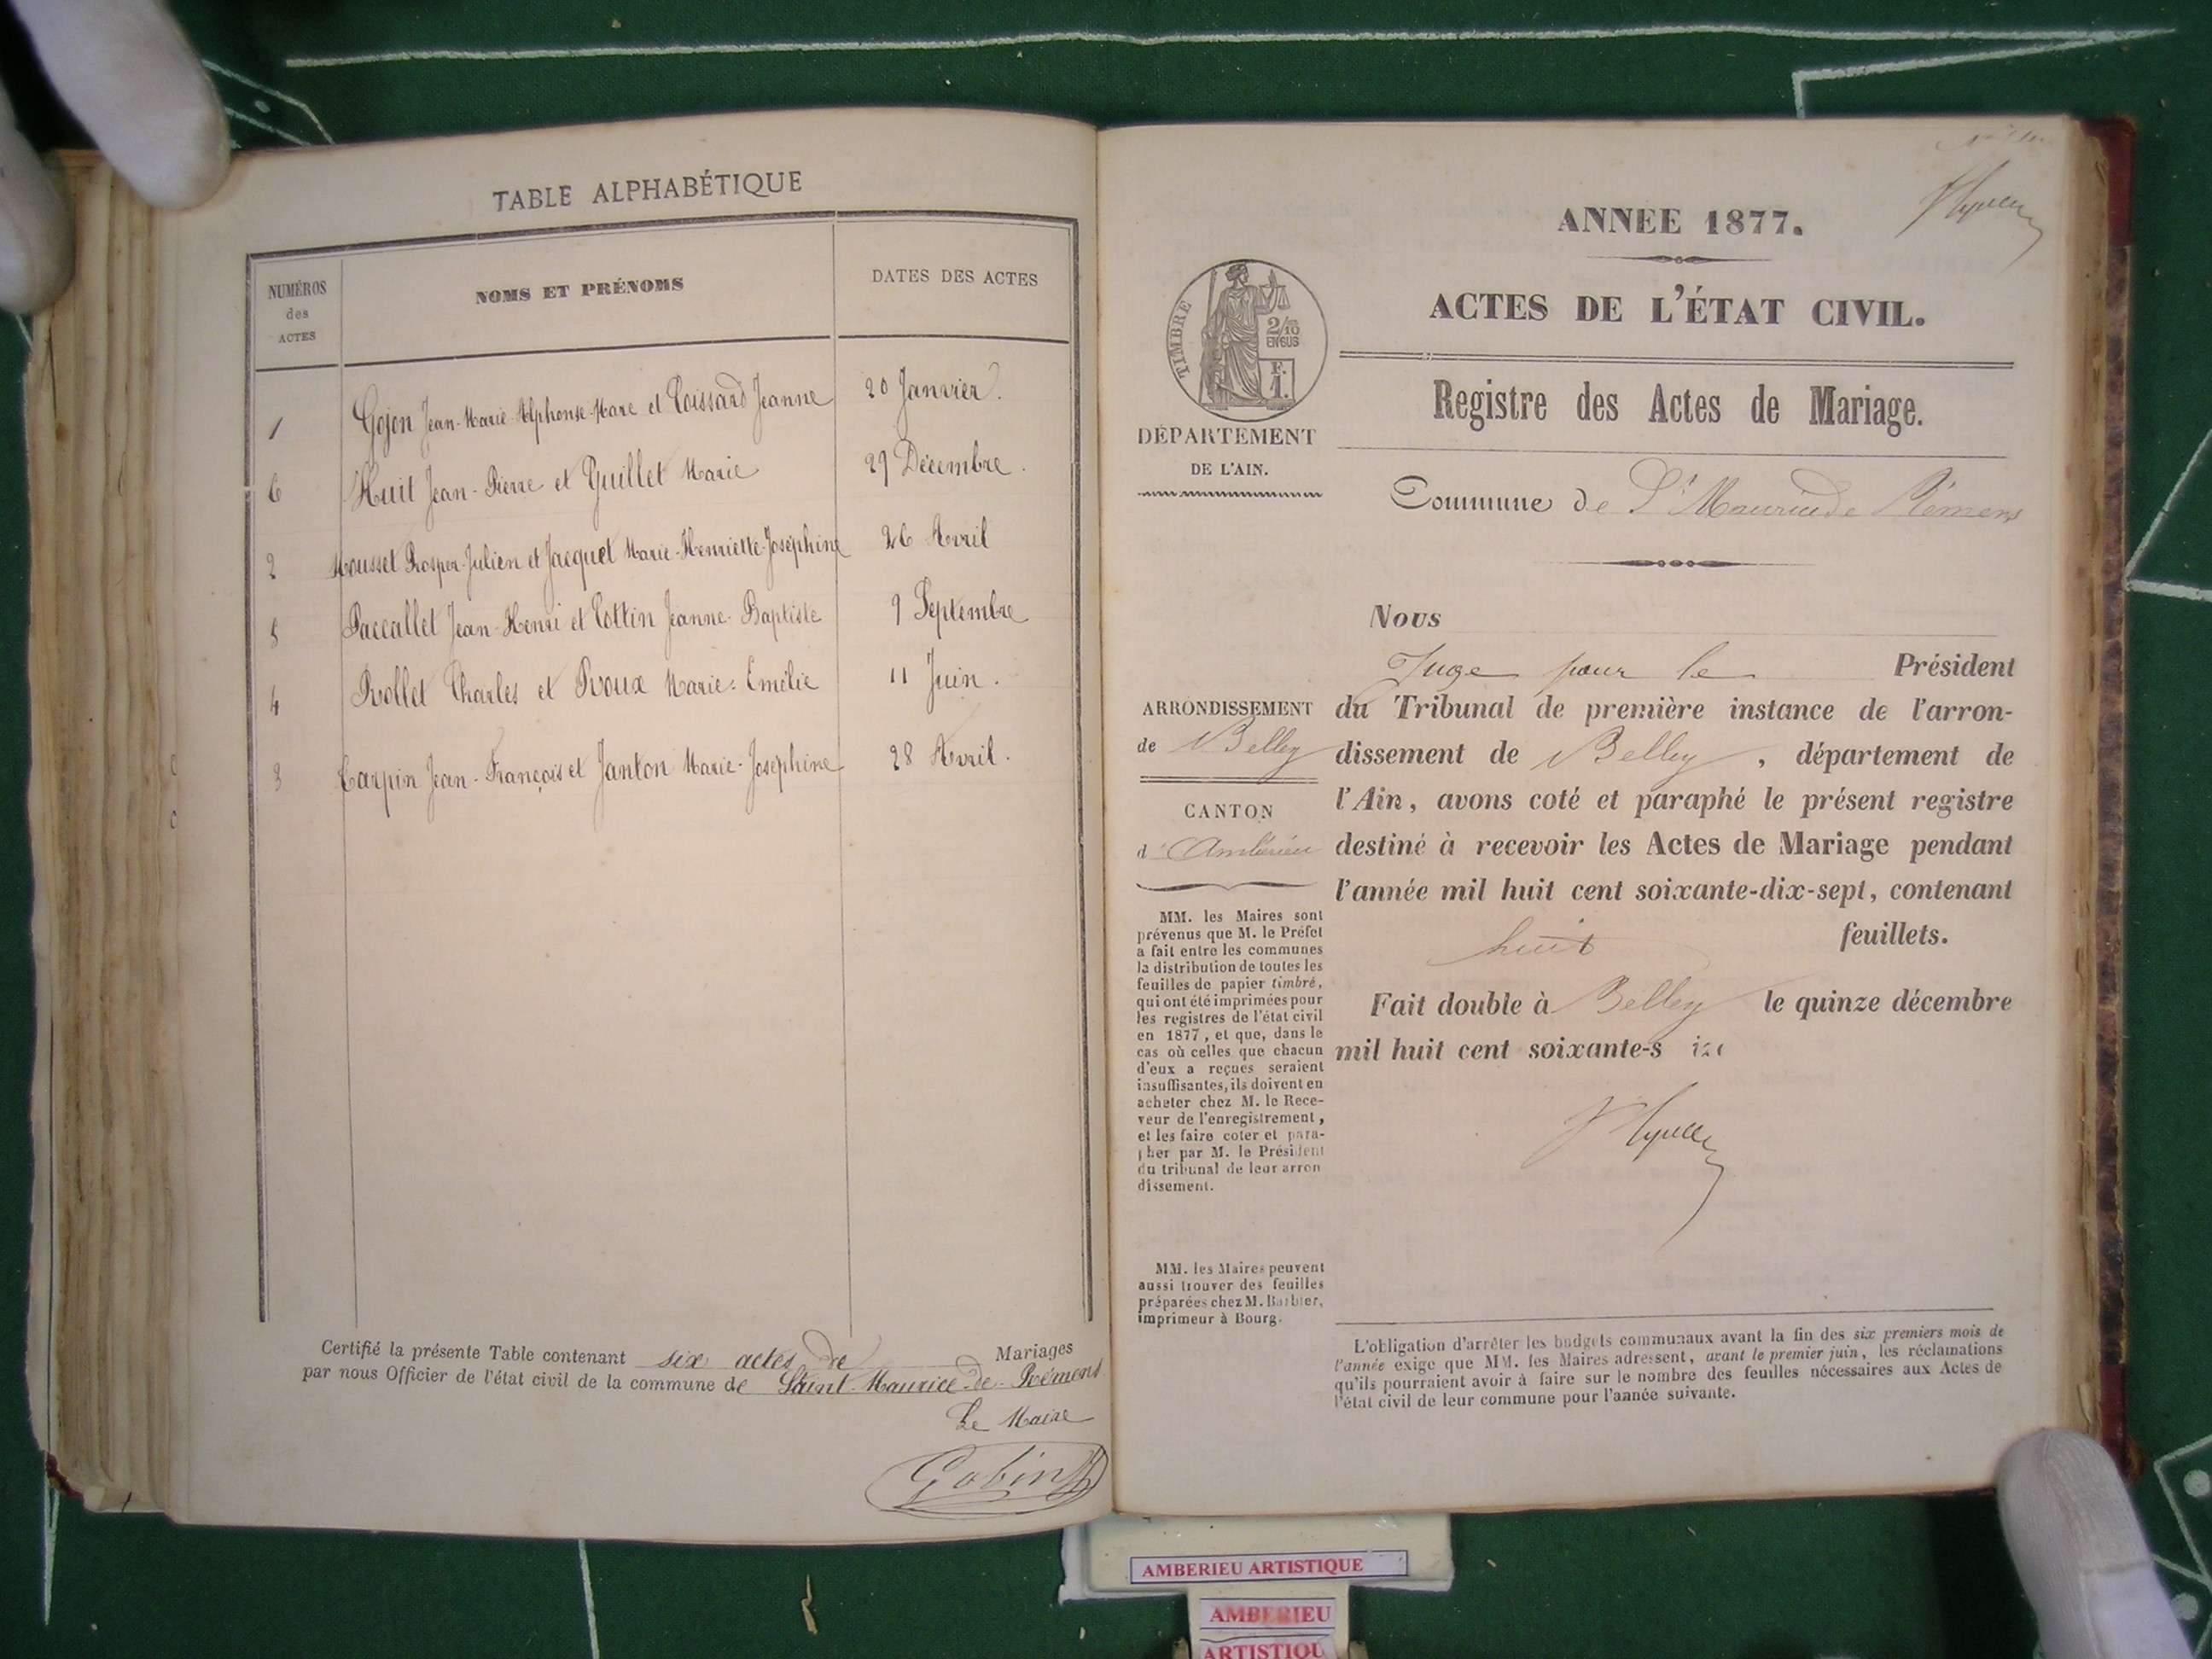 TABLE ALPHABÉTIQUE
NUMÉROS
des
ACTES
NOMS ET PRÉNOMS
DATES DES ACTES
1 Gojon Jean-Marie-Alphonse-Marc et Poissard Jeanne 20 Janvier.
6 Huit Jean-Pierre et Guillet Marie 29 Décembre.
2 Mousset Prosper-Julien et Jacquet Marie-Henriette-Joséphine 26 Avril
5 Paccallet Jean-Henri et Cottin Jeanne-Baptiste 9 Septembre
4 Rollet Charles et Roux Marie-Emélie 11 Juin.
3 Carpin Jean-François et Janton Marie-Joséphine 28 Avril.
Certifié la présente Table contenant six actes de Mariages
par nous Officier de l'état civil de la commune de Saint-Maurice-de-Rémens
Le Maire
Gobin
ANNEE 1877.
ACTES DE L'ÉTAT CIVIL.
Registre des Actes de Mariage.
Commune de St Maurice de Rémens
TIMBRE
2/10
EN SUS
F.
1.
DÉPARTEMENT
DE L'AIN.
ARRONDISSEMENT
de Belley
CANTON
d'Ambérieu
MM. les Maires sont
prévenus que M. le Préfet
a fait entre les communes
la distribution de toutes les
feuilles de papier timbré,
qui ont été imprimées pour
les registres de l'état civil
en 1877, et que, dans le
cas où celles que chacun
d'eux a reçues seraient
insuffisantes, ils doivent en
acheter chez M. le Rece-
veur de l'enregistrement,
et les faire coter et para-
pher par M. le Président
du tribunal de leur arron
dissement.
MM. les Maires peuvent
aussi trouver des feuilles
préparées chez M. Barbier,
imprimeur à Bourg.
Nous
Juge pour le Président
du Tribunal de première instance de l'arron-
dissement de Belley, département de
l'Ain, avons coté et paraphé le présent registre
destiné à recevoir les Actes de Mariage pendant
l'année mil huit cent soixante-dix-sept, contenant
huit feuillets.
Fait double à Belley le quinze décembre
mil huit cent soixante-s ize
L'obligation d'arrêter les budgets communaux avant la fin des six premiers mois de
l'année exige que MM. les Maires adressent, avant le premier juin, les réclamations
qu'ils pourraient avoir à faire sur le nombre des feuilles nécessaires aux Actes de
l'état civil de leur commune pour l'année suivante.
AMBERIEU ARTISTIQUE
AMBERIEU
ARTISTIQU